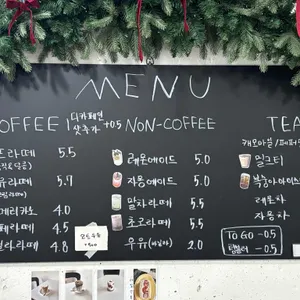 MENU
COFFEE
디카페인
샷추가 +0.5
NON-COFFEE
TEA
트라떼 5.5
유라떼 5.7
메리카노 4.0
페라떼 4.5
닐라라떼 4.8
레몬에이드 5.0
자몽에이드 5.0
말차라떼 5.5
초코라떼 5.5
우유(바닐라) 2.0
캐모마일/페퍼
밀크티
복숭아아이스
레몬차
자몽차
TO GO -0.5
텀블러 -0.5